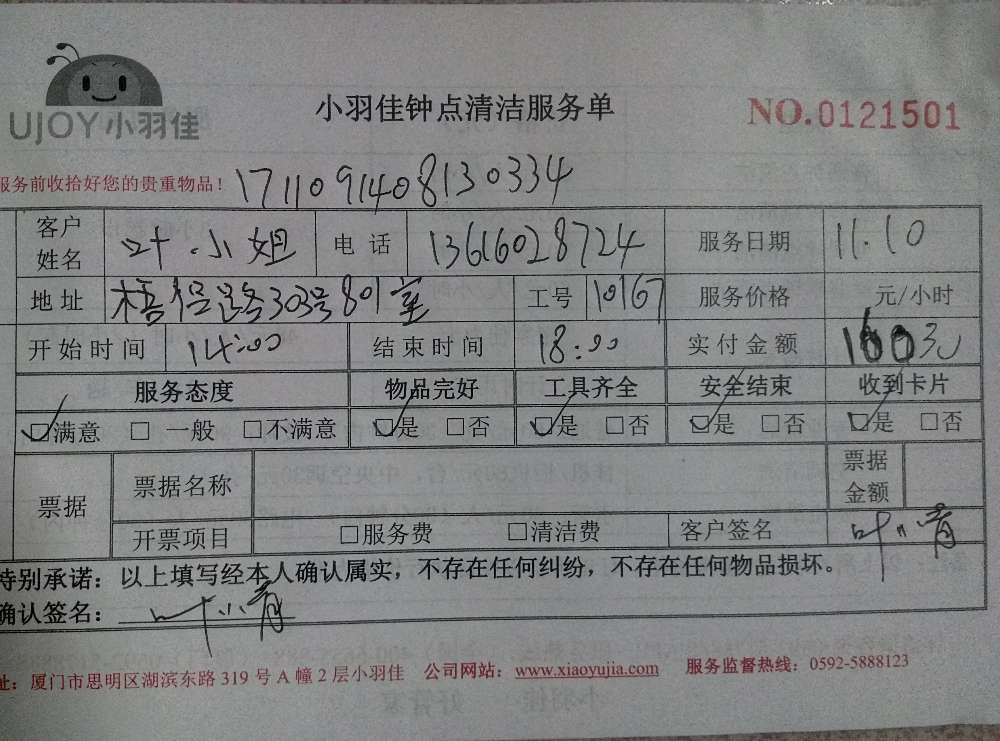 UJOY小羽佳
小羽佳钟点清洁服务单
NO.0121501
服务前收拾好您的贵重物品！ 1711091408130334
客户姓名 叶小姐 电话 13616028724 服务日期 11.10
地址 303号801室 工号 10167 服务价格 元/小时
开始时间 14:00 结束时间 18:00 实付金额
服务态度 物品完好 工具齐全 安全结束 收到卡片
☑满意 □一般 □不满意 ☑是 □否 ☑是 □否 ☑是 □否 ☑是 □否
票据 票据名称 票据金额
开票项目 □服务费 □清洁费 客户签名 叶小青
特别承诺：以上填写经本人确认属实，不存在任何纠纷，不存在任何物品损坏。
确认签名：叶小青
址：厦门市思明区湖滨东路319号A幢2层小羽佳 公司网站：www.xiaoyujia.com 服务监督热线：0592-5888123